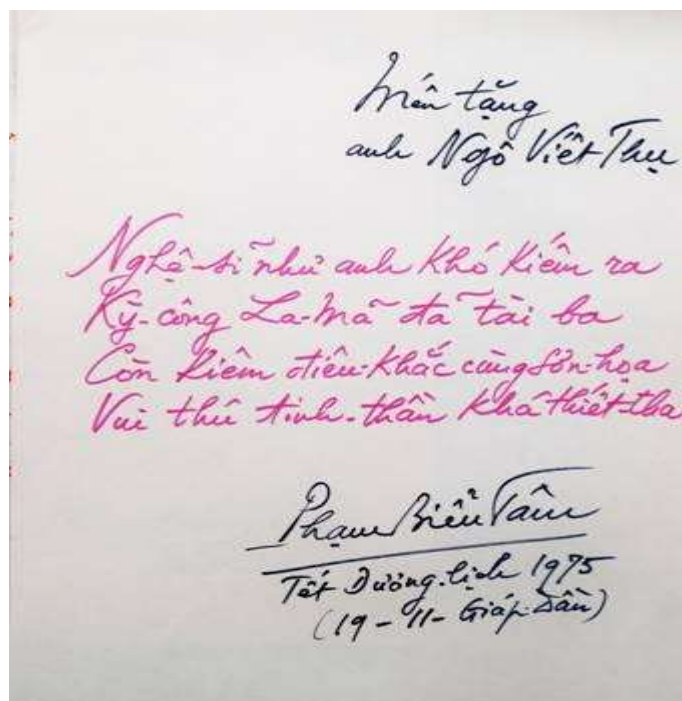 Mến tặng
anh Ngô Viết Thụ
Nghệ-sĩ như anh khó kiếm ra
Kỳ-công La-Mã đã tài ba
Còn kiêm điêu-khắc cùng sơn-họa
Vui thú tinh-thần khá thiết-tha
Phạm Biểu Tâm
Tết Dương-lịch 1975
(19-11-Giáp-Dần)